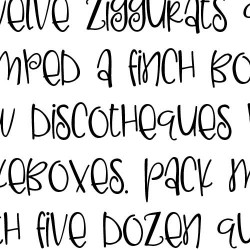 welve ziggurats q
mped a finch bo
w discotheques
keboxes. pack m
th five dozen qu